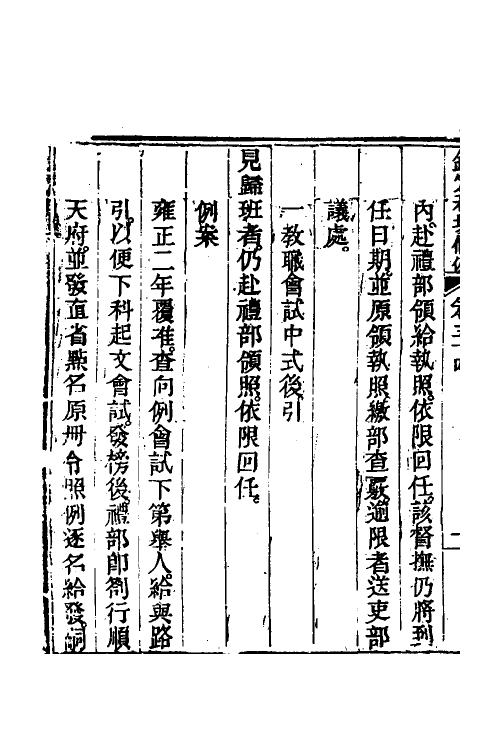 內赴禮部領給執照依限回任該督撫仍將到
任日期並原領執照繳部查覈逾限者送吏部
議處
一教職會試中式後引
見歸班者仍赴禮部領照依限回任
例案
雍正二年覆准查向例會試下第舉人給與路
引以便下科起文會試發榜後禮部卽劄行順
天府並發直省點名原冊令照例逐名給發詞